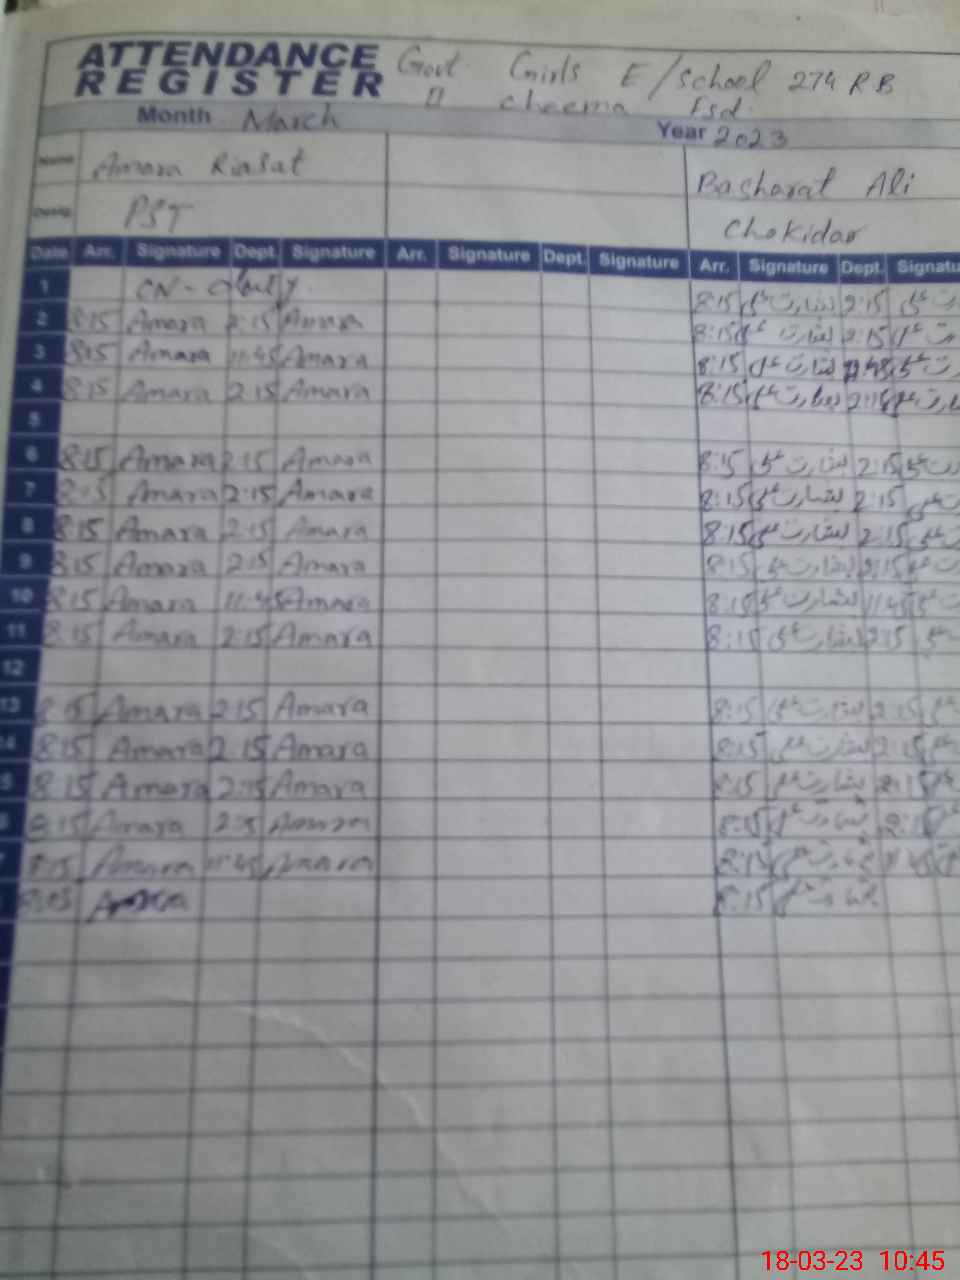 ATTENDANCE Govt. Girls E/School 274 RB
REGISTER Cheema Fsd.
Month March Year 2023
Name Amara Riasat Basharat Ali
Desig. PST Chokidar
Date Arr. Signature Dept. Signature Arr. Signature Dept. Signature Arr. Signature Dept. Signatu
1 ON-duty. 8:15 بشارت علی 2:15
2 8:15 Amara 2:15 Amara 8:15 بشارت علی 2:15
3 8:15 Amara 11:45 Amara 8:15 بشارت علی
4 8:15 Amara 2:15 Amara 8:15 بشارت علی 2:15
5
6 8:15 Amara 2:15 Amara 8:15 بشارت علی 2:15
7 Amara 2:15 Amara 8:15 بشارت علی 2:15
8 8:15 Amara 2:15 Amara 8:15 بشارت علی 2:15
9 8:15 Amara 2:15 Amara 8:15 بشارت علی 2:15
10 8:15 Amara 11:45 Amara 8:15 بشارت علی 11:45
11 8:15 Amara 2:15 Amara 8:15 بشارت علی 2:15
12
13 8:15 Amara 2:15 Amara 8:15 بشارت علی 2:15
4 8:15 Amara 2:15 Amara 8:15 بشارت علی 2:15
5 8:15 Amara 2:15 Amara 8:15 بشارت علی 2:15
8:15 Amara Amara 8:15 بشارت علی 2:15
8:15 Amara 11:45 Amara بشارت علی
Amara 8:15 بشارت علی
18-03-23 10:45